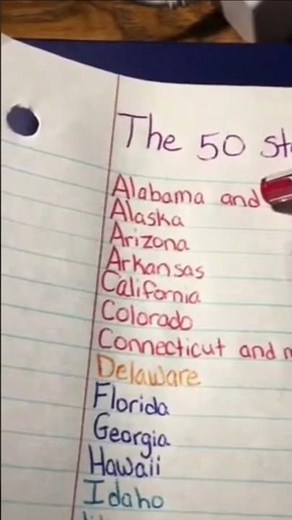 The 50
Alabama and
Alaska
Arizona
Arkansas
California
Colorado
Connecticut and
Delaware
Florida
Georgia
Hawaii
Idaho